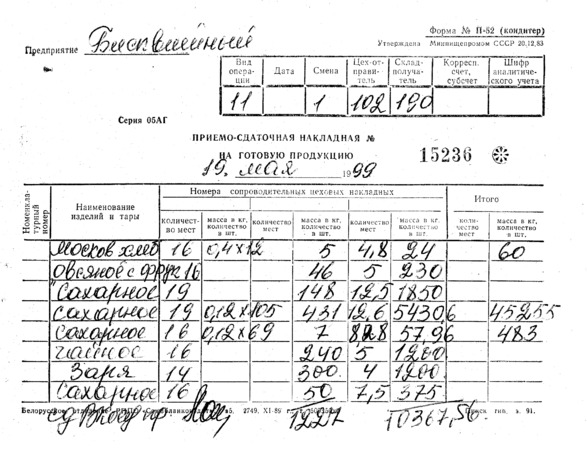 Форма № П-52 (кондитер)
Предприятие Бисквитный
Утверждена Минпищепромом СССР 20.12.83
Вид опера-ции Дата Смена Цех-от-прави-тель Склад-получа-тель Корресп. счет, субсчет Шифр аналитиче-ского учета
11 1 102 190
Серия 05АГ
ПРИЕМО-СДАТОЧНАЯ НАКЛАДНАЯ №
НА ГОТОВУЮ ПРОДУКЦИЮ 15236
19. мая 1999
Номенкла-турный номер Наименование изделий и тары Номера сопроводительных цеховых накладных Итого
количест-во мест масса в кг, количество в шт. количество мест масса в кг, количество в шт. количество мест масса в кг, количество в шт. коли-чество мест масса в кг, количество в шт.
Москов хлеб 16 0,4х12 5 4,8 24 60
Овсяное с фрук 16 46 5 230
Сахарное 19 148 12,5 1850
Сахарное 19 0,12х105 431 12,6 54306 45255
Сахарное 16 0,12х69 7 828 57,96 483
чайное 16 240 5 1200
Заря 14 300 4 1200
Сахарное 16 50 7,5 375
2749, XI-89 г.
1227 10367,56